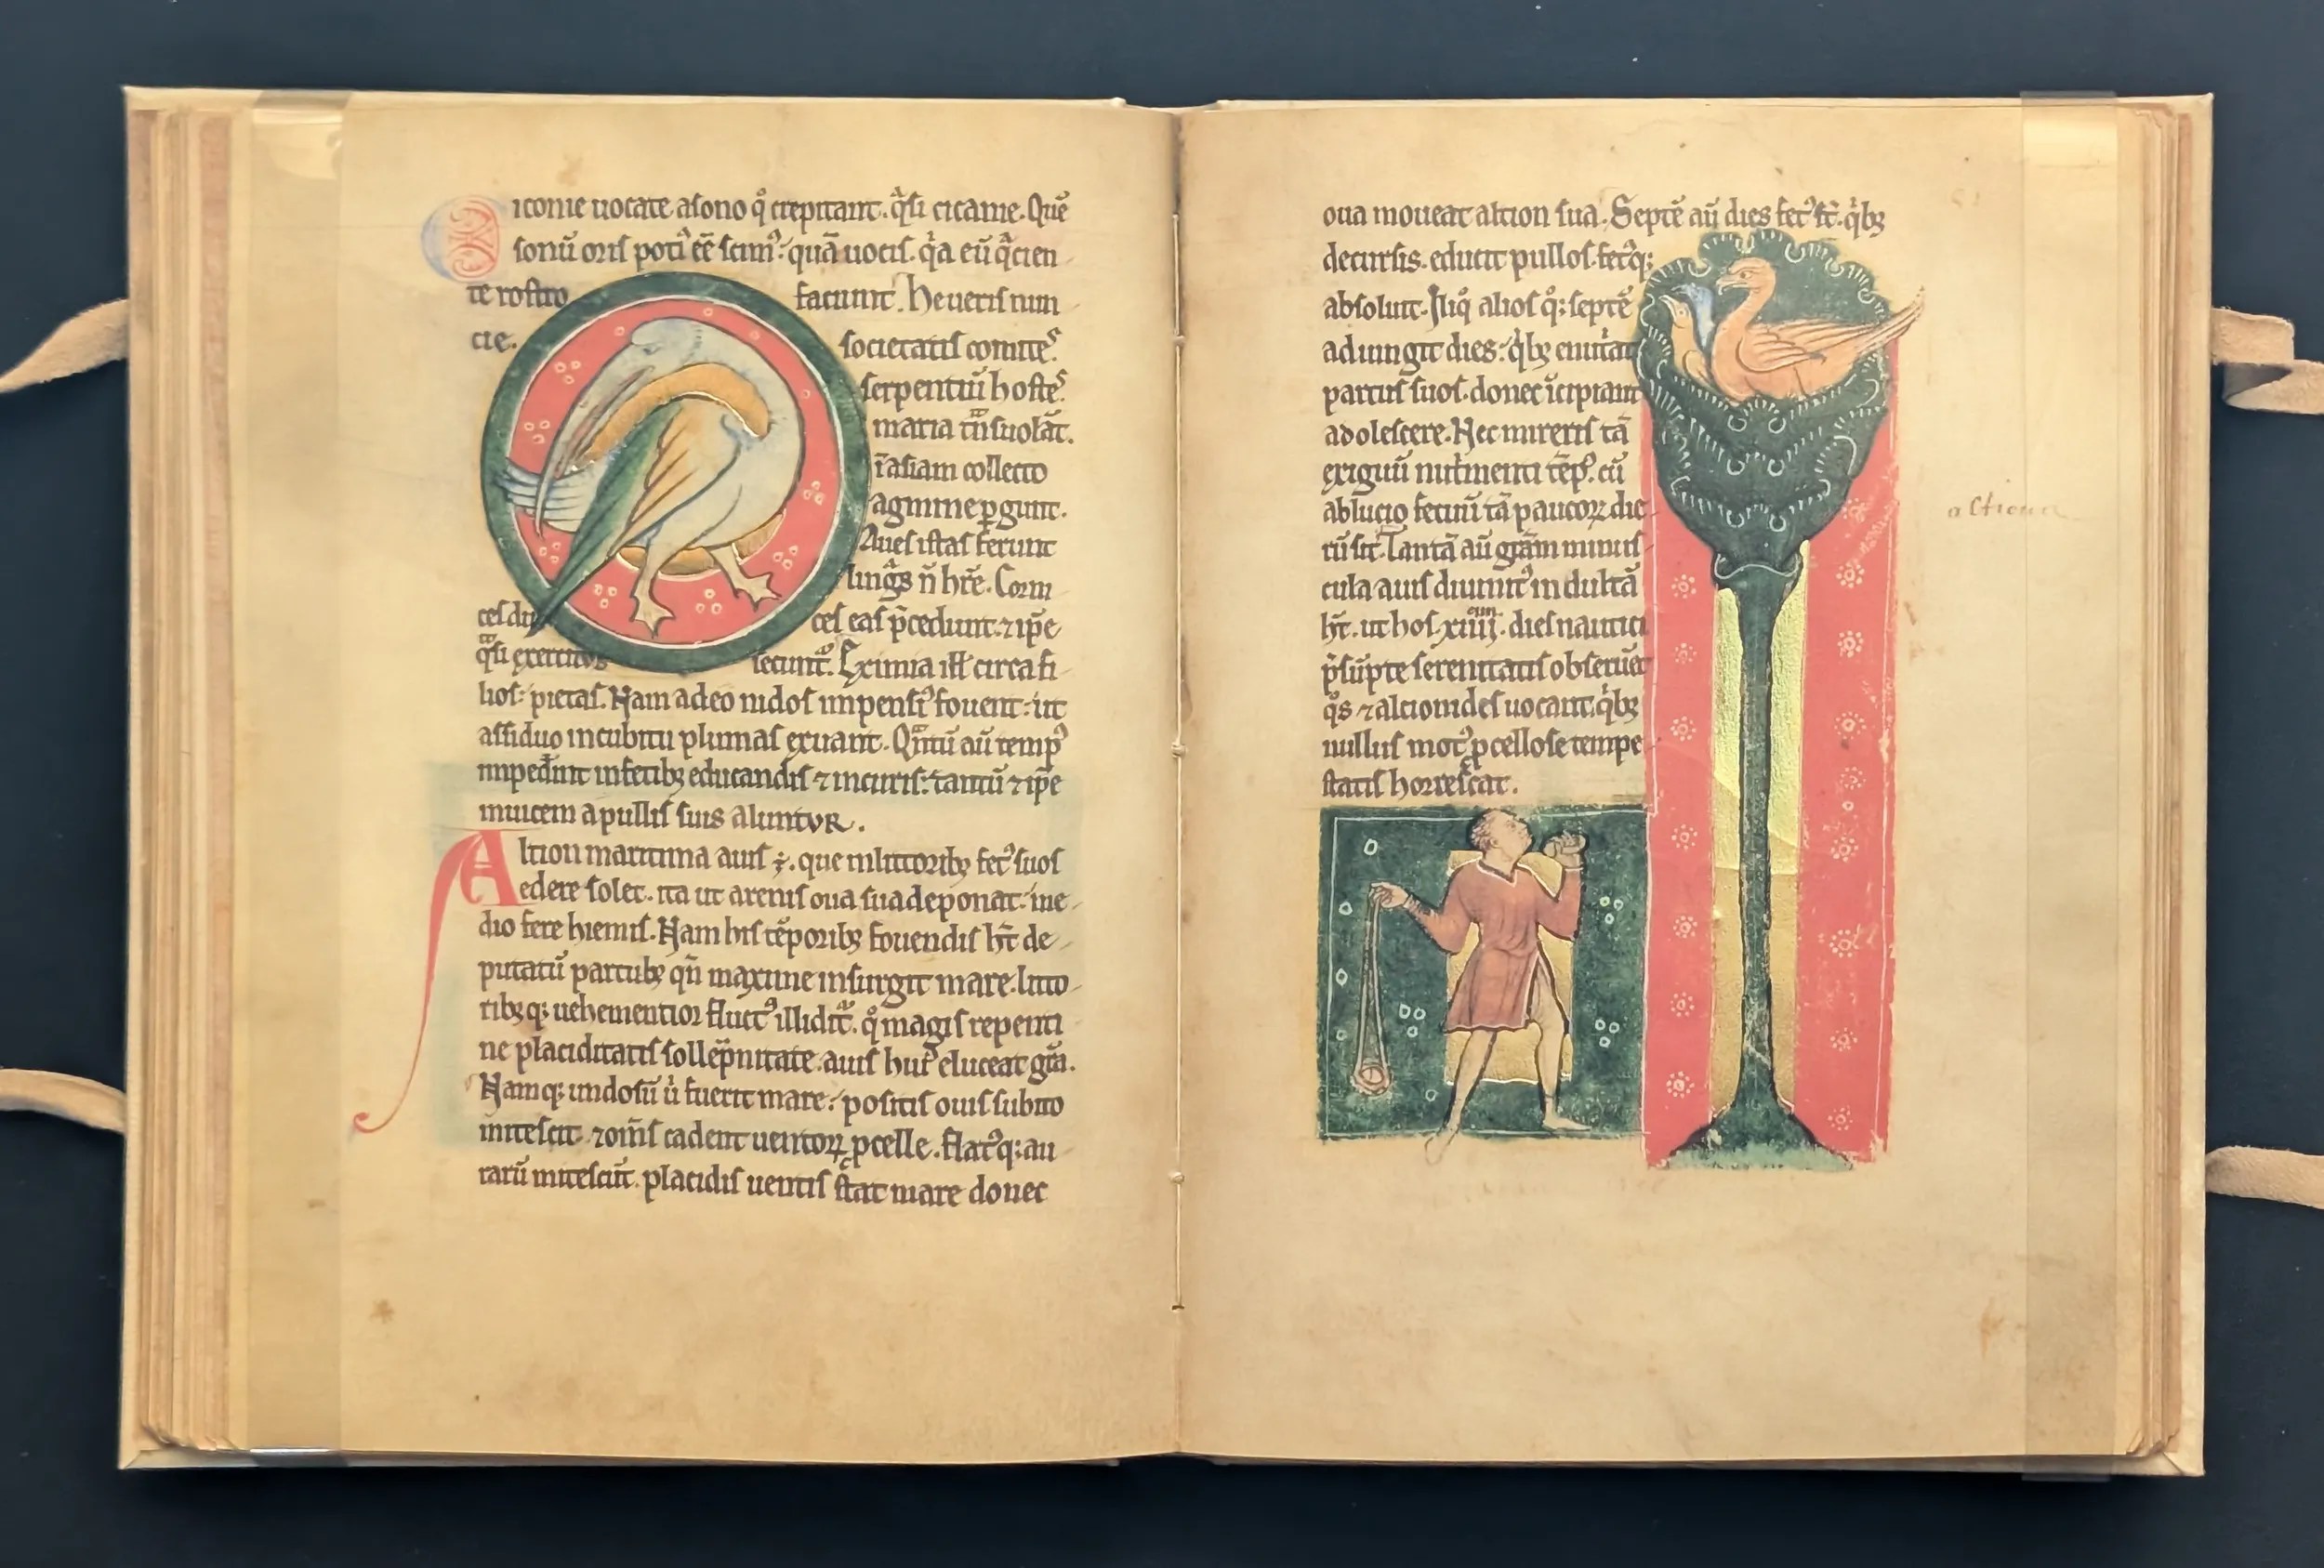 Ciconie uocate asono q̊ crepitant. q̑si cicanie. Quē
sonū oris poti᷒ eē scim᷒: quā uocis. q̇a eū q̑cien
te rostro faciunt. He ueris nun
cie. societatis comite᷒s.
serpentiū hoste᷒s.
maria tn̄suolāt.
īasiam collecto
agmine ꝑgunt.
Aues istas ferunt
linḡs n̄ hr̄e. Corni
ces du
ces eas p̄cedunt. ⁊ ip̄e
q̑si exercitus secunt᷑. Eximia ill̓ circa fi
lios: pietas. Nam adeo nidos impensi᷒ fouent: ut
assiduo incubitu plumas exuant. Qn̑tū aū temp᷒
impedi᷑nt infetibꝫ educandis ⁊ incuris: tantū ⁊ ip̄e
inuicem apullis suis aluntvR.
Altion maritima auis ÷. que inlittoribꝫ fet᷒ suos
aedere solet. ita ut arenis oua sua deponat: me
dio fere hiemis. Nam his tēporibꝫ fouendis hт̄ de
putatū partubꝫ qn̄ maxime insurgit mare. litto
ribꝫqꝫ uehementior fluct᷒ illidit᷑. q̊ magis repenti
ne placiditatis sollēpnitate auis hui᷒ eluceat gr̄a.
Namqꝫ undosū u̇ fuerit mare: positis ouis subito
mitescit. ⁊om̄s cadent uentoꝝ ꝓcelle. flat᷒qꝫ au
rarū mitescūt. placidis uentis stat mare donec
oua moueat altion sua. Septē aū dies fet᷒ st̄. q̇bꝫ
decursis. educit pullos. fet᷒qꝫ
absoluit. Iliq̊ alios q̊qꝫ septē
adiungit dies: q̇bꝫ enutriat
partus suos. donec īcipiant
adolescere. Nec mireris tā
exiguū nut̓menti tēp᷒. cū
ablucio fetuū tā paucoꝝ die
rū sit. Tantā aū gr̄am minus
cula auis diuinit᷒ indultā
hт̄. ut hos .xiiii. dies nautici
p̄sūpte serenitatis obseruēt
q̊s ⁊ alcionides uocant. q̇bꝫ
nullus mot᷒ ꝓcellose tempe
statis horrescat.
altiona